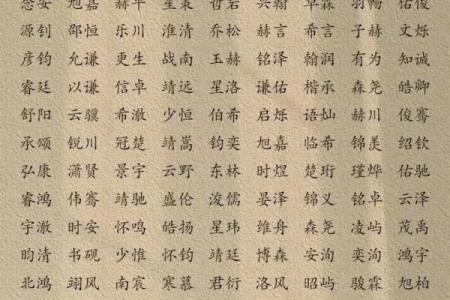 恣安 旭嘉 赫平 星策 哲若 兴翰 卓霖 羽畅 佑俊
源钊 邵恒 乐川 淮清 乔松 赫言 希言 子赫 文烁
彦钧 允谦 更生 战南 玉赫 铭泽 翰润 有为 知诚
睿廷 以谦 信卓 靖远 星洛 谦佑 楷承 森尧 皓卿
舒阳 云骥 希澈 少恒 伯希 启烁 语灿 赫川 俊骞
承颂 锐川 冠楚 靖嵩 钧奕 旭嘉 临希 锦羡 绍钦
弘康 潇贤 景宇 云野 东林 时煜 楚珩 瑾烨 佑驰
睿鸿 伟骞 靖驰 盛伦 浚儒 晏泽 锦义 铭卓 云泽
宇澈 时安 怀鸣 皓扬 星玮 维舟 森尧 凌屿 茂禹
昀清 书砚 少惟 怀钧 靖廷 博森 安洵 奕洵 鸿宇
北鸿 翊风 南宸 寒慕 君衍 洛风 昭屿 骏霖 旭柏